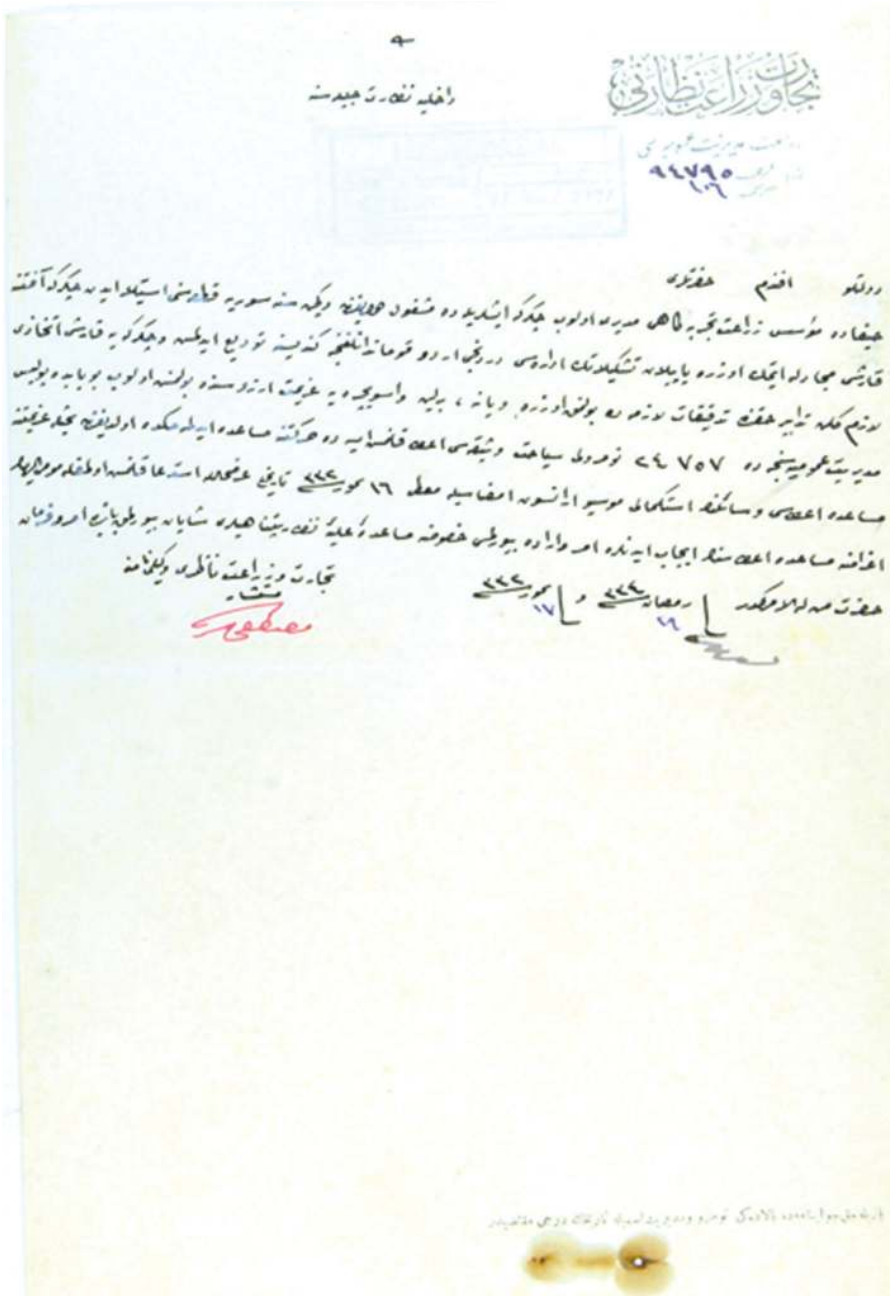 تجارت وزراعت نظارتی
زراعت مديريت عموميه‌سی
٩٤٧٩٥
١٠٦
داخليه نظارت جليله‌سنه
دولتلو افندم حضرتلری
حيفاده مؤسس زراعت تجربه‌كاهی مديری اولوب چكركه ايشلريله ده مشغول اولان و كچن سنه سوريه قطعه‌سنی استيلا ايدن چكركه آفتنه
قارشی مجادله ايتمك اوزره ياپيلان تشكيلاتك اداره‌سی دردنجی اردو قوماندانلغنجه كنديسنه توديع ايدلمش وچكركه‌يه قارشی اتخاذی
لازم كلن تدابير حقنده تدقيقات لازمه‌ده بولنمق اوزره ويانه ، برلين واسويچره‌يه عزيمت ارزوسنده بولنمش اولوب بو بابده پوليس
مديريت عموميه‌سنجه ده ٢٤٧٥٧ نومرولی سياحت وثيقه‌سی اعطا قلنمش ايسه ده حركتنه مساعده ايدلمكده اولديغندن بحثله عزيمتنه
مساعده اعطاسی موسيو ارانسون امضاسيله معطی ١٦ تموز ٣٣٢ تاريخلی عرضحالده استدعا قلنمش اولمغله مومی‌اليهك
مساعده اعطاسنك ايجاب ايدنلره امر واراده بيورلمسی خصوصنه مساعدهٔ عليهٔ نظارتپناهيلری شايان بيورلمق بابنده امر وفرمان
حضرت من له الامركدر ١٩ رمضان ٣٣٤ و ١٧ تموز ٣٣٢
تجارت وزراعت ناظری وكيلی نامنه
مستشار
مصطفی